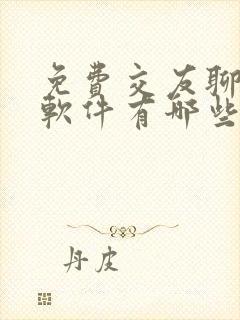 免費交友聊
軟件有哪些
丹皮